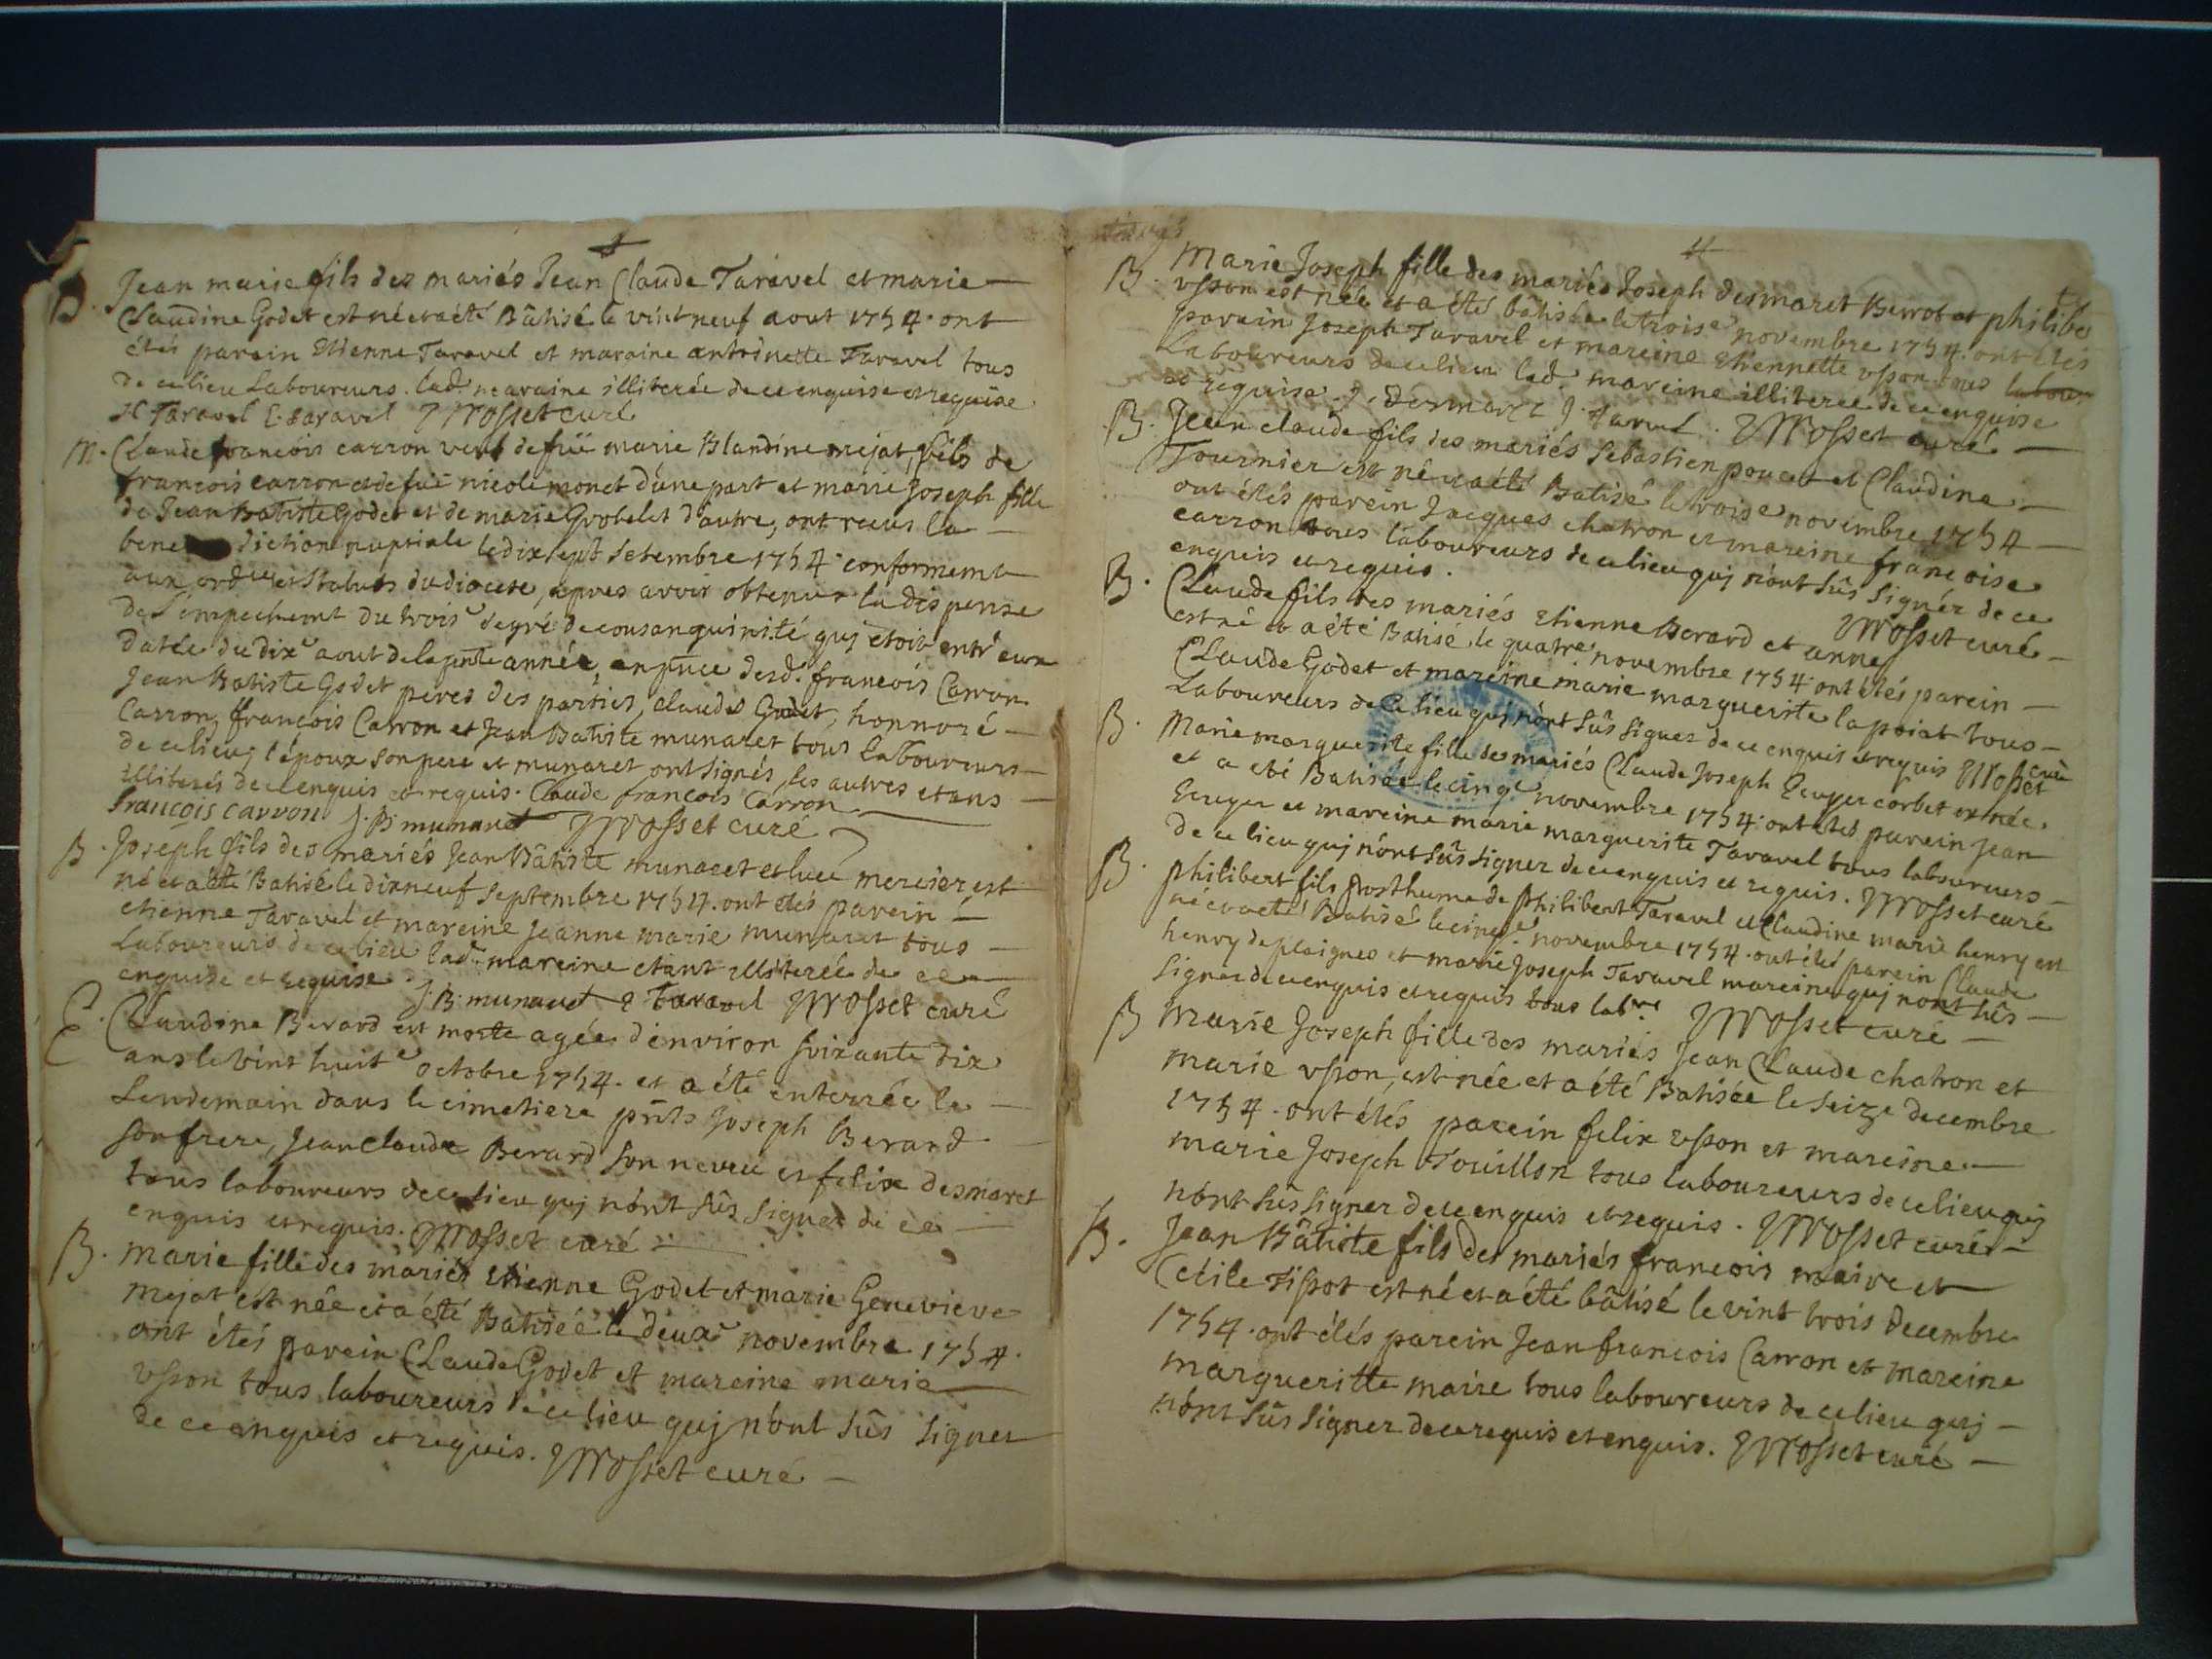 B. Jean marie fils des mariés Jean Claude Taravel et marie
Claudine Godet est né et a été Bâtisé le vint neuf aout 1754. ont
étés parein Etienne Taravel et maraine antoinette Taravel tous
de ce lieu Laboureurs. lad. maraine illiterée de ce enquise et requise
Taravel E. taravel Mosset curé
M. Claude francois carron veuf de füe marie Blandine mejat, fils de
francois carron et de füe nicole monet d'une part et marie Joseph fille
de Jean Batiste Godet et de marie Grobelet d'autre, ont recus la
bene diction nuptiale le dix sept setembre 1754 conformemt
aux ordces et Statuts du diocese, apres avoir obtenus la dispense
de L'empechemt du troise degré de consanguinité quj etoit entr'eux
datée du dixe aout de la pnte année, en pnce desd. francois Carron
Jean Batiste Godet peres des parties, claude Godet, honnoré
Carron, francois Carron et Jean Batiste munaret tous Laboureurs
de ce lieu, l'époux son pere et munaret ont signés, les autres etans
illiterés de ce enquis et requis. Claude francois Carron
francois carron J. B. munaret Mosset curé
B. Joseph fils des mariés Jean Bâtiste munaret et luce mercier est
né et a été Batisé le dix neuf septembre 1754. ont étés parein
etienne Taravel et mareine Jeanne marie munaret tous
Laboureurs de ce lieu lad. mareine etant illiterée de ce
enquise et requise. J. B. munaret E taravel Mosset curé
E. Claudine Berard est morte agée d'environ soixante dix
ans le vint huite octobre 1754. et a été enterrée le
Lendemain dans le cimetiere pnts Joseph Berard
son frere, Jean Claude Berard son neveu et felix desmaret
tous laboureurs de ce lieu quj n'ont sûs signer de ce
enquis et requis. Mosset curé
B. marie fille des mariés Etienne Godet et marie Genevieve
mejat est née et a été Batisée le deuxe novembre 1754.
ont étés parein Claude Godet et mareine marie
usson tous laboureurs de ce lieu quj n'ont sûs signer
de ce enquis et requis. Mosset curé
4
B. Marie Joseph fille des mariés Joseph desmaret Berrot et philiber
te
usson est née et a été bâtisée le troise novembre 1754. ont étés
parein Joseph Taravel et mareine Etiennette usson tous labour
Laboureurs de ce lieu lad. mareine illiterée de ce enquise
et requise. J. Desmaret J. tarvel. Mosset curé
B. Jean claude fils des mariés Sebastien poucet et Claudine
Tournier est né et a été Batisé le troise novembre 1754
ont étés parein Jacques chatron et mareine francoise
carron tous laboureurs de ce lieu quj n'ont sûs signer de ce
enquis et requis. Mosset curé
B. Claude fils des mariés Etienne Berard et anne
est né et a été Batisé le quatre novembre 1754 ont étés parein
Claude Godet et mareine marie marguerite lapoiat tous
Laboureurs de ce lieu quj n'ont sûs signer de ce enquis et requis Mosset curé
B. Marie marguerite fille des mariés Claude Joseph Ecuyer corbet est née
et a été Batisée le cinqe novembre 1754 ont étés parein Jean
Ecuyer et mareine marie marguerite Taravel tous laboureurs
de ce lieu quj n'ont sûs signer de ce enquis et requis. Mosset curé
B. philibert fils Posthume de Philibert Taravel et Claudine marie henry est
né et a été Batisé le cinqe. novembre 1754. ont étés parein Claude
henry deplaignes et marie Joseph Taravel mareine quj n'ont sûs
signer de ce enquis et requis tous labrs. Mosset curé
B Marie Joseph fille des mariés Jean Claude chatron et
marie usson, est née et a été Batisée le seize decembre
1754. ont étés parein felix usson et mareine
marie Joseph Touillon tous laboureurs de ce lieu quj
n'ont sûs signer de ce enquis et requis. Mosset curé
B. Jean Bâtiste fils des mariés francois maire et
Cecile Tissot est né et a été bâtisé le vint trois decembre
1754. ont étés parein Jean francois Carron et mareine
margueritte maire tous laboureurs de ce lieu quj
n'ont sûs signer de ce requis et enquis. Mosset curé